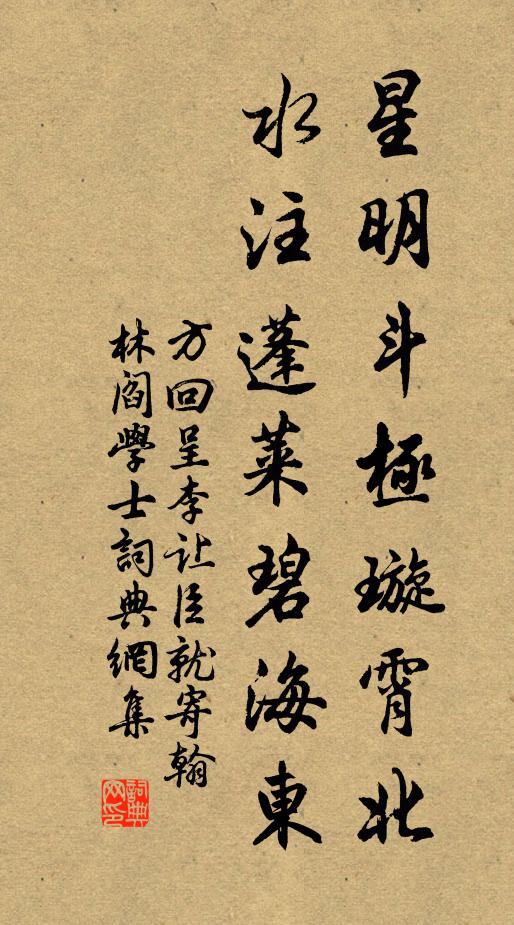 星明斗極璇霄北
水注蓬萊碧海東
方回呈李让臣就寄翰
林閻學士詞典網集
詞典网印